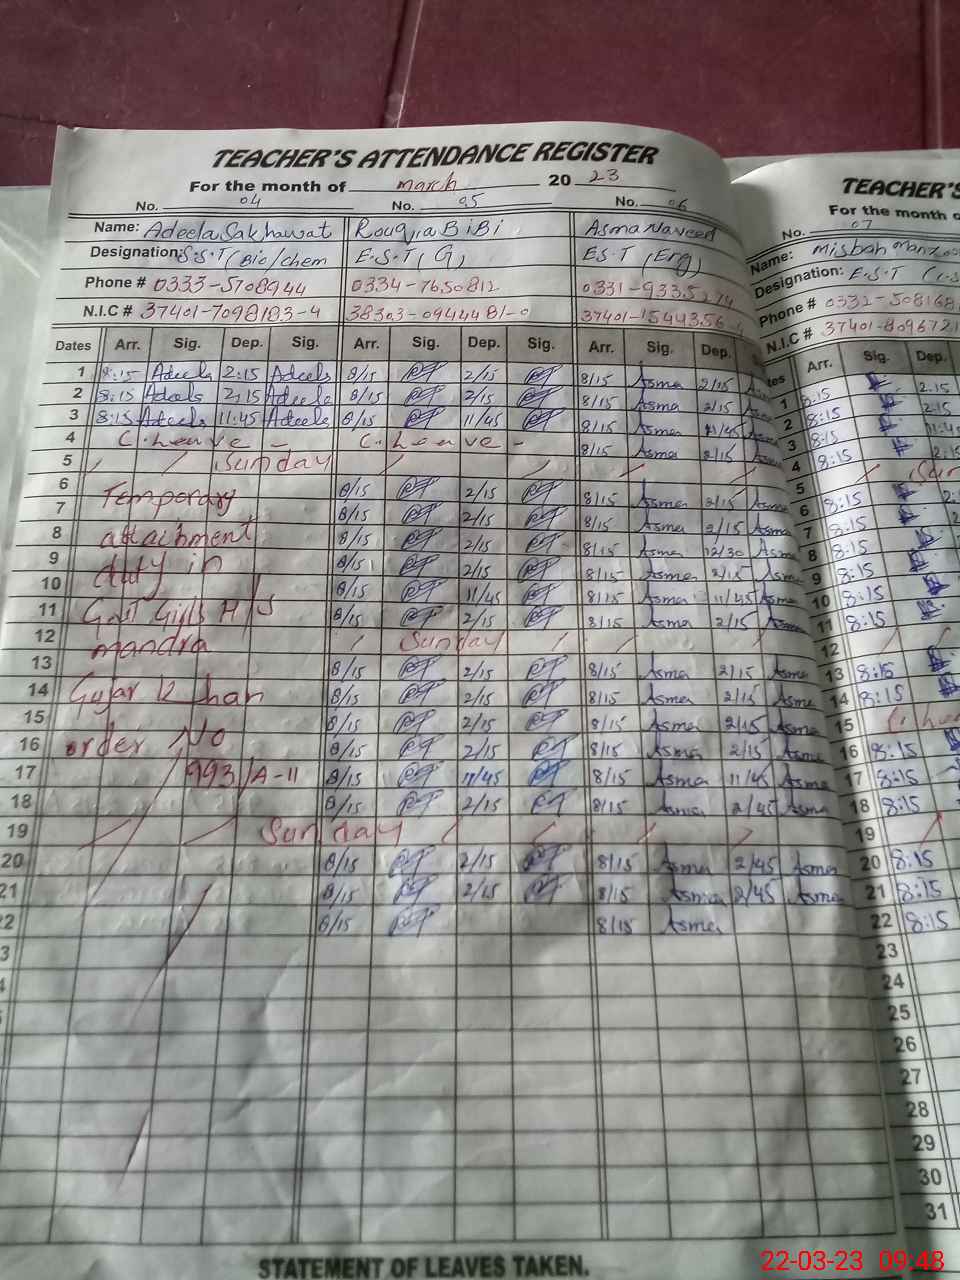 TEACHER'S ATTENDANCE REGISTER
For the month of march 20 23
No. 04 No. 05 No. 06
Name: Adeela Sakhawat Rouqia BiBi Asma Naveed
Designation: S.S.T (Bio/chem E.S.T (G) ES.T (Eng)
Phone # 0333-5708944 0334-7650812 0331-933
N.I.C # 37401-7098183-4 38303-0944481-0 37401-1544356
Dates Arr. Sig. Dep. Sig. Arr. Sig. Dep. Sig. Arr. Sig. Dep.
1 8:15 Adeela 2:15 Adeela 8/15 2/15 8/15 Asma 2/15 Asma
2 8:15 Adeela 2:15 Adeela 8/15 2/15 8/15 Asma 2/15 Asma
3 8:15 Adeela 11:45 Adeela 8/15 11/45 8/15 Asma 11/45 Asma
4 C. Leave - C. Leave - 8/15 Asma 2/15 Asma
5 Sunday
6 Temporary 8/15 2/15 8/15 Asma 2/15 Asma
7 8/15 2/15 8/15 Asma 2/15 Asma
8 attachment 8/15 2/15 8/15 Asma 12/30 Asma
9 duty in 8/15 2/15 8/15 Asma 2/15 Asma
10 8/15 11/45 8/15 Asma 11/45 Asma
11 Govt Girls H/S 8/15 2/15 8/15 Asma 2/15 Asma
12 mandra Sunday
13 8/15 2/15 8/15 Asma 2/15 Asma
14 Gujar Khan 8/15 2/15 8/15 Asma 2/15 Asma
15 8/15 2/15 8/15 Asma 2/15 Asma
16 order No 8/15 2/15 8/15 Asma 2/15 Asma
17 993/A-11 8/15 11/45 8/15 Asma 11/45 Asma
18 8/15 2/15 8/15 Asma 2/45 Asma
19 Sunday
20 8/15 2/15 8/15 Asma 2/45 Asma
21 8/15 2/15 8/15 Asma 2/45 Asma
22 8/15 8/15 Asma
STATEMENT OF LEAVES TAKEN.
TEACHER'S
For the month
No. 07
Name: misbah
Designation: E.S.T
Phone # 0332-508168
N.I.C # 37401-8096721
Arr. Sig. Dep.
1 8:15 2:15
2 8:15 2:15
3 8:15 11:4
4 8:15 2:15
5
6 8:15 2:
7 8:15
8 8:15
9 8:15
10 8:15
11 8:15
12
13 8:15
14 8:15
15
16 8:15
17 8:15
18 8:15
19
20 8:15
21 8:15
22 8:15
23
24
25
26
27
28
29
30
31
22-03-23 09:48